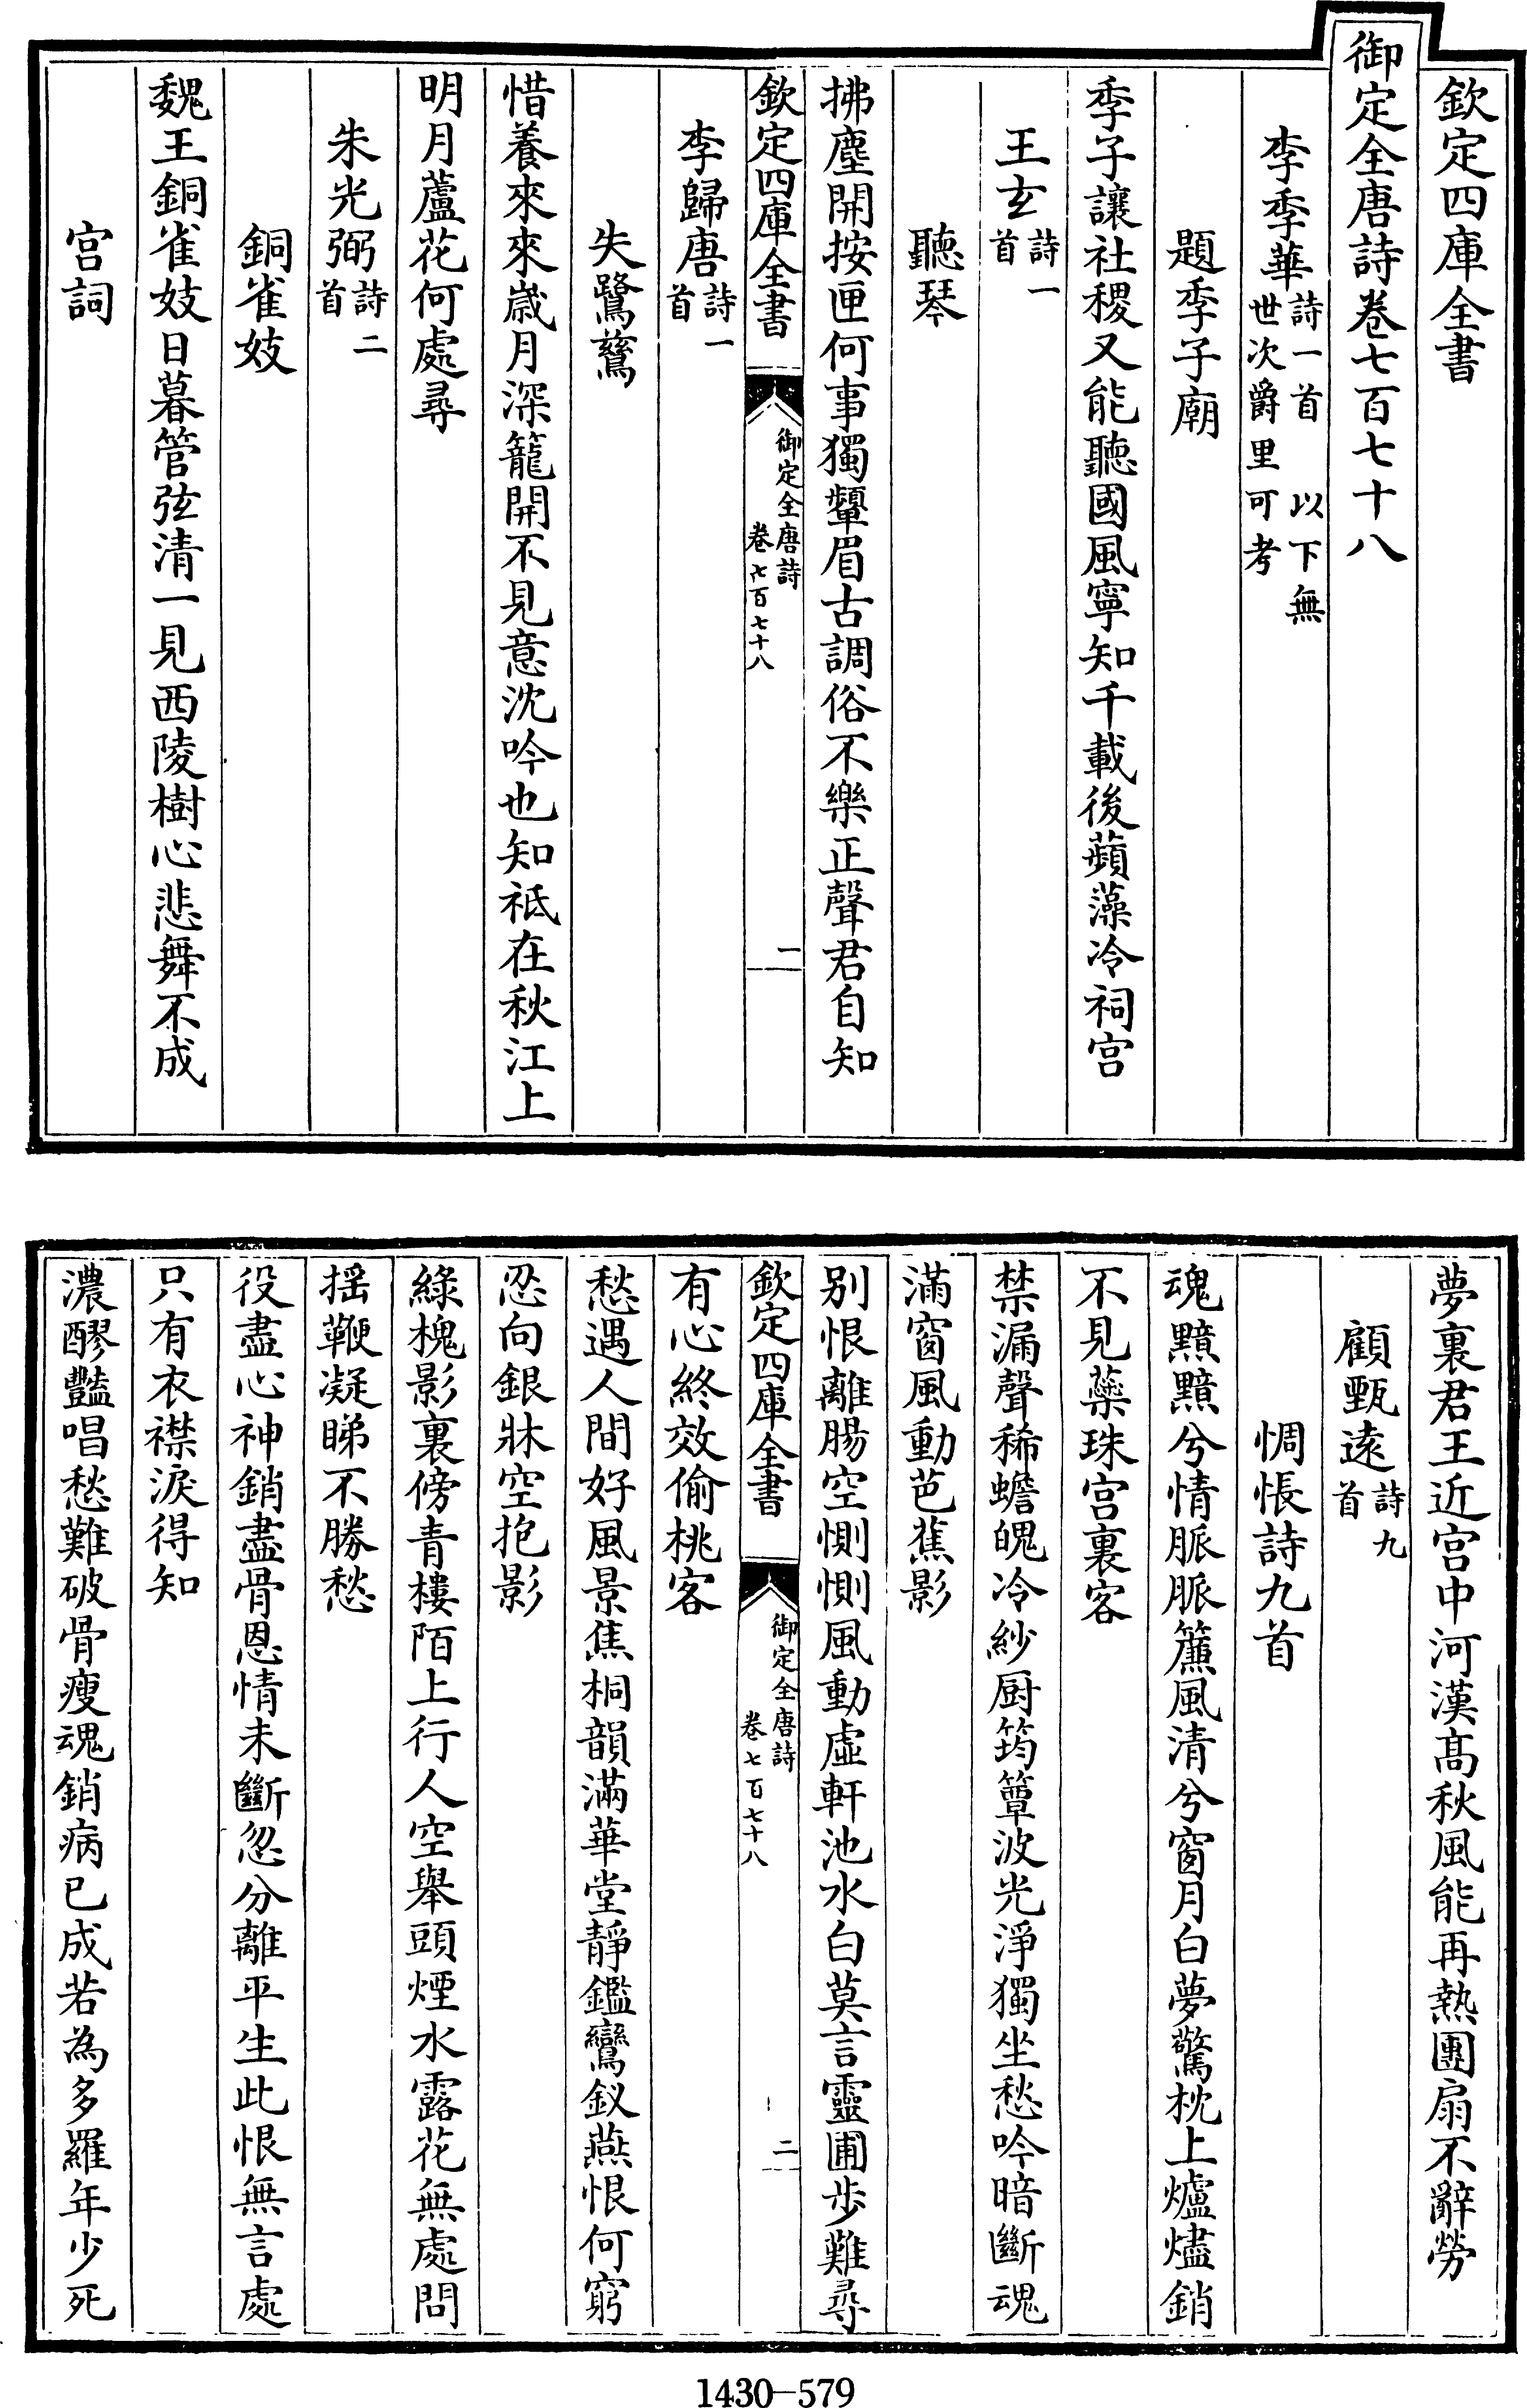 欽定四庫全書
御定全唐詩卷七百七十八
李季華詩一首 以下無世次爵里可考
題季子廟
季子讓社稷又能聽國風寧知千載後蘋藻冷祠宫
王玄詩一首
聽琴
拂塵開按匣何事獨顰眉古調俗不樂正聲君自知
欽定四庫全書 御定全唐詩 卷七百七十八 一
李歸唐詩一首
失鷺鷥
惜養來來嵗月深籠開不見意沈吟也知祗在秋江上
明月蘆花何處尋
朱光弼詩二首
銅雀妓
魏王銅雀妓日暮管弦清一見西陵樹心悲舞不成
宫詞
夢裏君王近宫中河漢髙秋風能再熱團扇不辭勞
顧甄遠詩九首
惆悵詩九首
魂黯黯兮情脈脈簾風清兮窗月白夢驚枕上爐燼銷
不見蘂珠宫裏客
禁漏聲稀蟾魄冷紗厨筠簟波光淨獨坐愁吟暗斷魂
滿窗風動芭蕉影
别恨離腸空惻惻風動虛軒池水白莫言靈圃步難尋
欽定四庫全書 御定全唐詩 卷七百七十八 二
有心終效偷桃客
愁遇人間好風景焦桐韻滿華堂靜鑑鸞釵燕恨何窮
忍向銀牀空抱影
綠槐影裏傍青樓陌上行人空舉頭煙水露花無處問
揺鞭凝睇不勝愁
役盡心神銷盡骨恩情未斷忽分離平生此恨無言處
只有衣襟淚得知
濃醪豔唱愁難破骨瘦魂銷病已成若為多羅年少死
1430-579